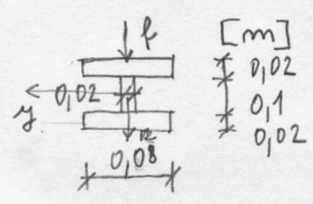 f
[m]
0,02
0,02
y
0,1
0,02
0,08